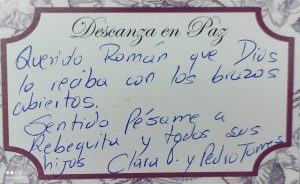 Descanza en Paz
Querido Román que Dios
lo reciba con los brazos
abiertos.
Sentido Pésame a
Rebequita y todos sus
hijos Clara O. y Pedro Torres